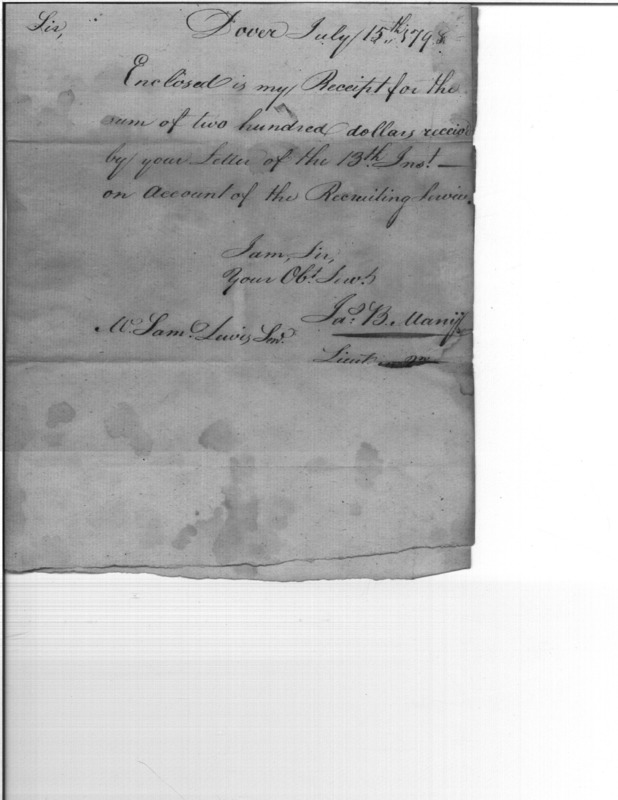 Sir, Dover July 15th 1798.
Enclosed is my Receipt for the
sum of two hundred dollars
by your Letter of the 13th Inst —
on Account of the Recruiting Service.
I am, Sir,
Your Obt. Servt
Jas. B. Many
Mr. Saml. Lewis Senr.
Lieut.